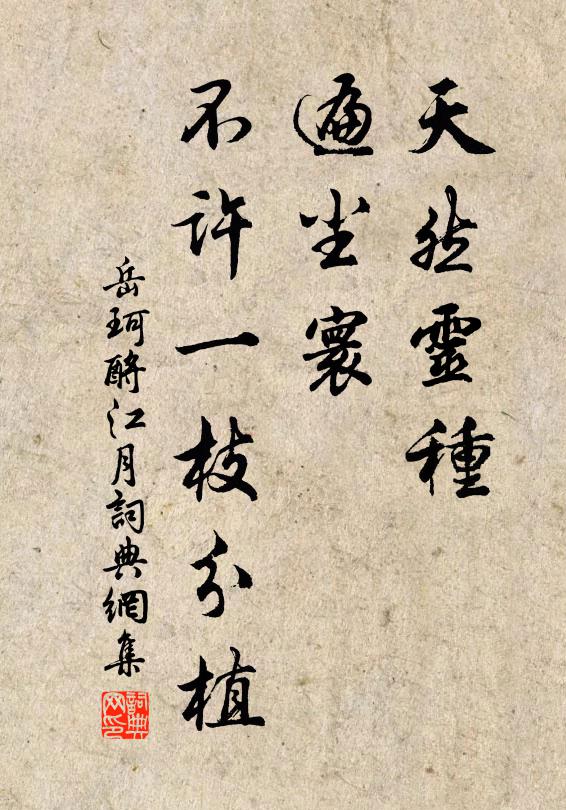 天然靈種
遍尘寰
不许一枝分植
岳珂酹江月詞典網集
詞典网印